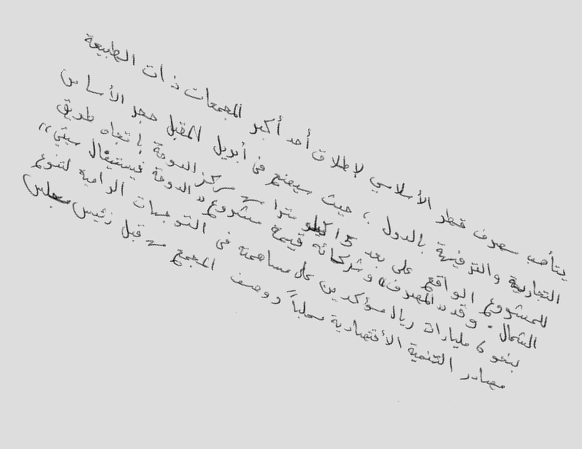 يتأهب مصرف قطر الأسلامي لإطلاق أحد أكبر المجمعات ذات الطبيعة
التجارية والترفيهية بالدول ، حيث سيضع في أبريل المقبل حجر الأساس
للمشروع الواقع على بعد 15 كيلو مترا من مركز الدوحة باتجاه طريق
الشمال . وقدر المصرف وشركائه قيمة مشروع " الدوحة فيستيفال سيتي "
بنحو 6 مليارات ريال مؤكدين على مساهمته في التوجهات الرامية لتنوع
مصادر التنمية الأقتصادية محلياً ووصف المجمع من قبل رئيس مجلس